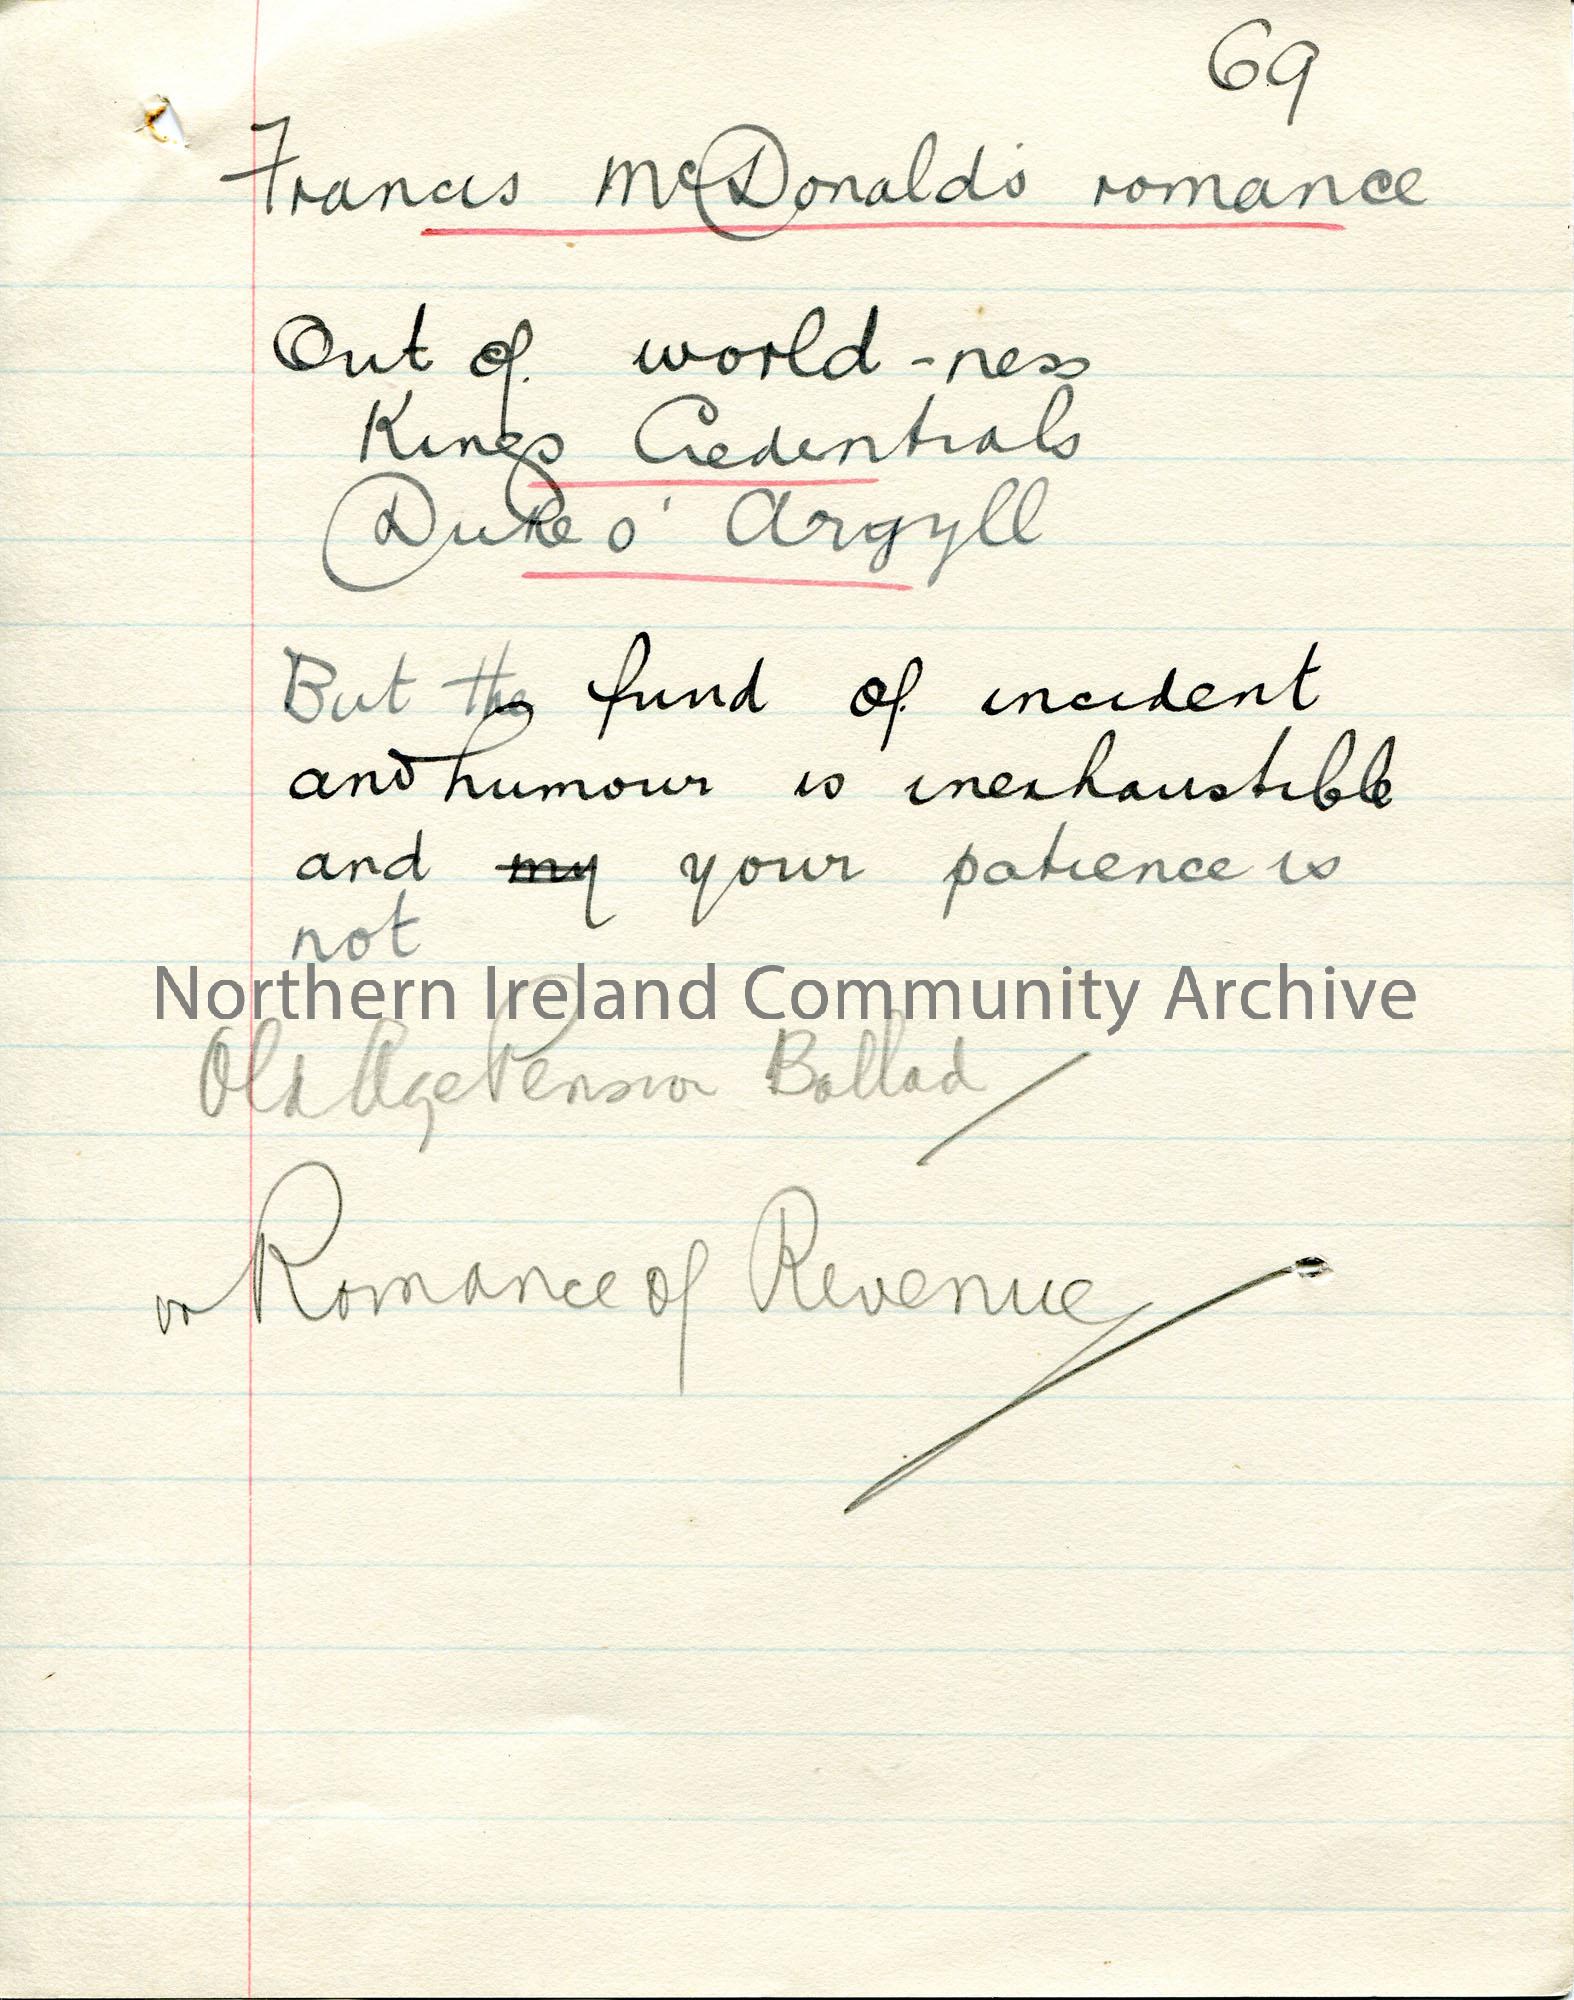 69
Francis McDonald's romance
Out of world-ness
Kings Credentials
Duke o' Argyll
But the fund of incident
and humour is inexhaustible
and my your patience is
not
Northern Ireland Community Archive
Old Age Pension Ballad
or Romance of Revenue